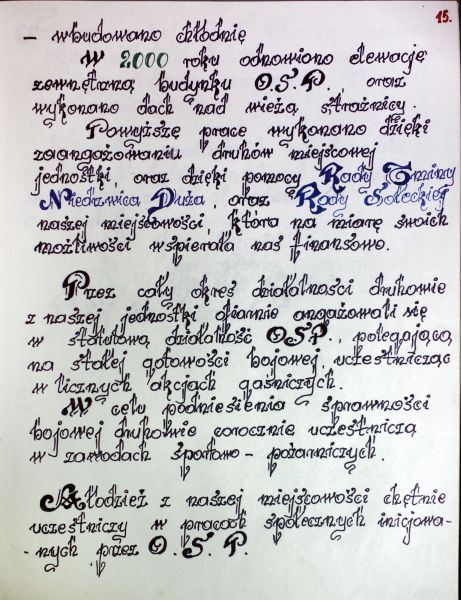 15.
- wbudowano chłodnię
W 2000 roku odnowiono elewację
zewnętrzną budynku O.S.P. oraz
wykonano dach nad wieżą strażnicy.
Powyższe prace wykonano dzięki
zaangażowaniu druhów miejscowej
jednostki, oraz dzięki pomocy Rady Gminy
Niedrzwica Duża, oraz Rady Sołeckiej
naszej miejscowości, która na miarę swoich
możliwości wspierała nas finansowo.
Przez cały okres działalności druhowie
z naszej jednostki ofiarnie angażowali się
w statutową działalność OSP., polegającą
na stałej gotowości bojowej, uczestnicząc
w licznych akcjach gaśniczych.
W celu podniesienia sprawności
bojowej druhowie corocznie uczestniczą
w zawodach sportowo - pożarniczych.
Młodzież z naszej miejscowości chętnie
uczestniczy w pracach społecznych inicjowa-
- nych przez O.S.P.